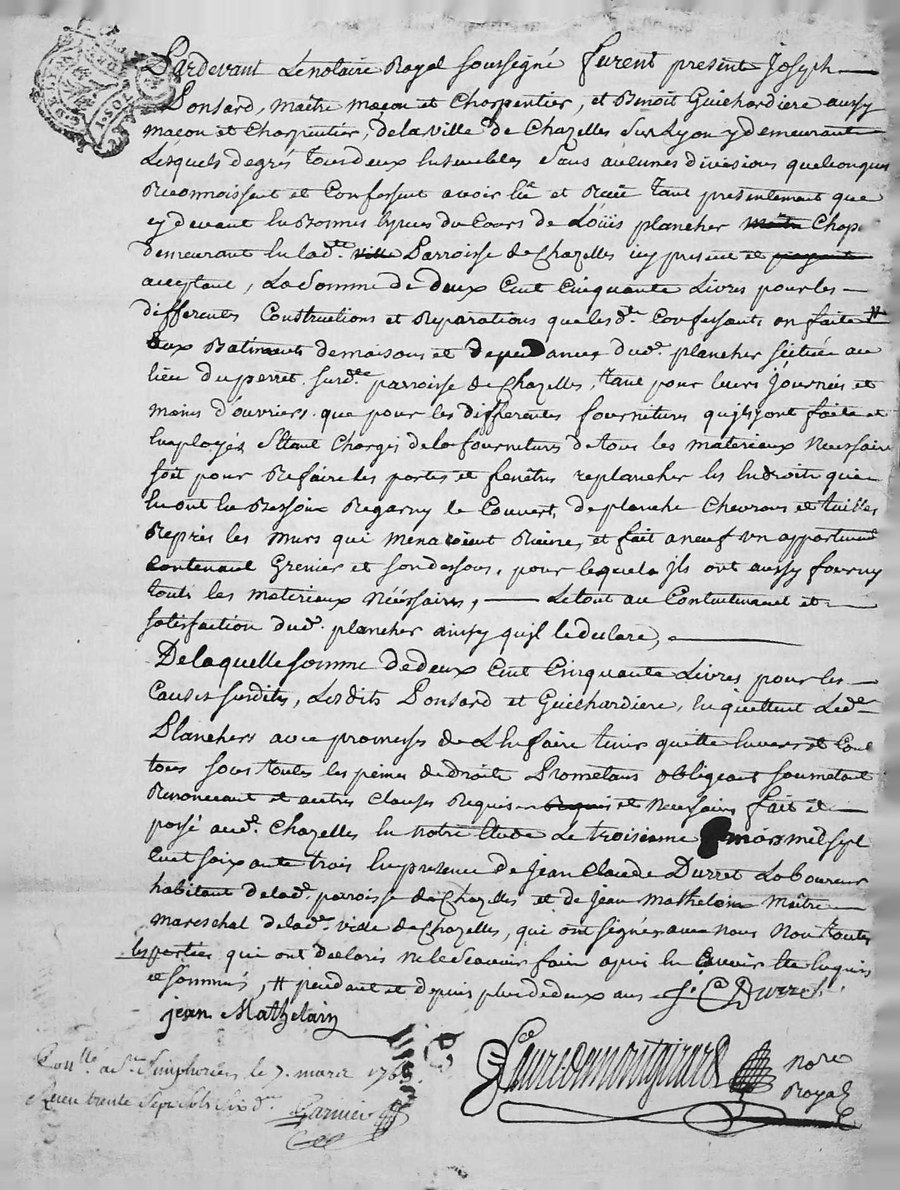 Pardevant Le notaire Royal soussigné furent present Joseph
Ponsard, maitre maçon et Charpentier, et Benoit Guichardiere aussy
maçon et Charpentier, de la ville de Chazelles sur Lyon y demeurant
Lesquels de gres tous deux Ensembles sans aucunes divisions quelconques
Reconnoissent et Confessent avoir Eû et Receu tant presentement que
cy devant En Bonnes Especes du Cours de Loüis plancher maitre Chap
demeurant En lad.te ville Parroisse de Chazelles icy present et
acceptant, La Somme de deux Cent Cinquante Livres pour les
differentes Constructions et Reparations que lesd.ts Confessants on faite #
aux Batiments de maisons et dependances dud.t plancher scituée au
lieu du perret sur d.te parroisse de Chazelles, tant pour leurs journées et
mains d'ouvriers que pour les differentes fournitures qu'ils ont faite et
Employes Ettant Chargés de la fourniture de tous les materiaux Necessaire
soit pour Refaire les portes et fenêtres replancher les Endroits qui
En ont Eu Bessoin Regarny le Couvert, de planche Chevrons et tuilles
Repris les murs qui menacoient Ruine, et fait a neuf un appartement
Contenant Grenier et son dessous, pour lequel ils ont aussy fourny
touts les materiaux Nécessaires, Le tout au Contentement et
satisfaction dud.t plancher ainsy qu'il le declare,
De laquelle somme de deux Cent Cinquante Livres pour les
Causes susdites, Lesdits Ponsard et Guichardiere, En quittent Led.t
Planchers avec promesses de L'En faire tenir quitte Envers et Con
tous sous toutes les peines de droits Prometans obligeant soumetant
Renoncant et autres clauses Requis Requis et Necessaire fait et
passé aud.t Chazelles En notre Etude Le troisieme mars mil sept
Cent soixante trois En presence de Jean Claude Durret Laboureur
habitant de lad.te paroisse de Chazelles et de Jean Mathelain maitre
mareschal de lad.te ville de Chazelles, qui ont signés avec nous Non toutes
les parties qui ont declarés ne le Scavoir faire apres En avoir Ete Enquis
et sommés, # pendant et depuis plus de deux ans J. C Durret
jean Mathelain
Con.llé a S.t Simphorien le 7. mars 176
Receu trente Sept Sols Six d.rs Garnier
Faure de montgirard
no.re
Royal